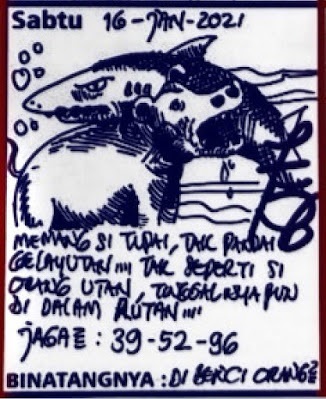 Sabtu 16-JAN-2021
MEMANG SI TUPAI, TAK PANDAI
GELAYUTAN,,,, TAK SEPERTI SI
ORANG UTAN, TINGGALNYA PUN
DI DALAM RUTAN,,,,
JAGA : 39-52-96
BINATANGNYA : DI BENCI ORANG²